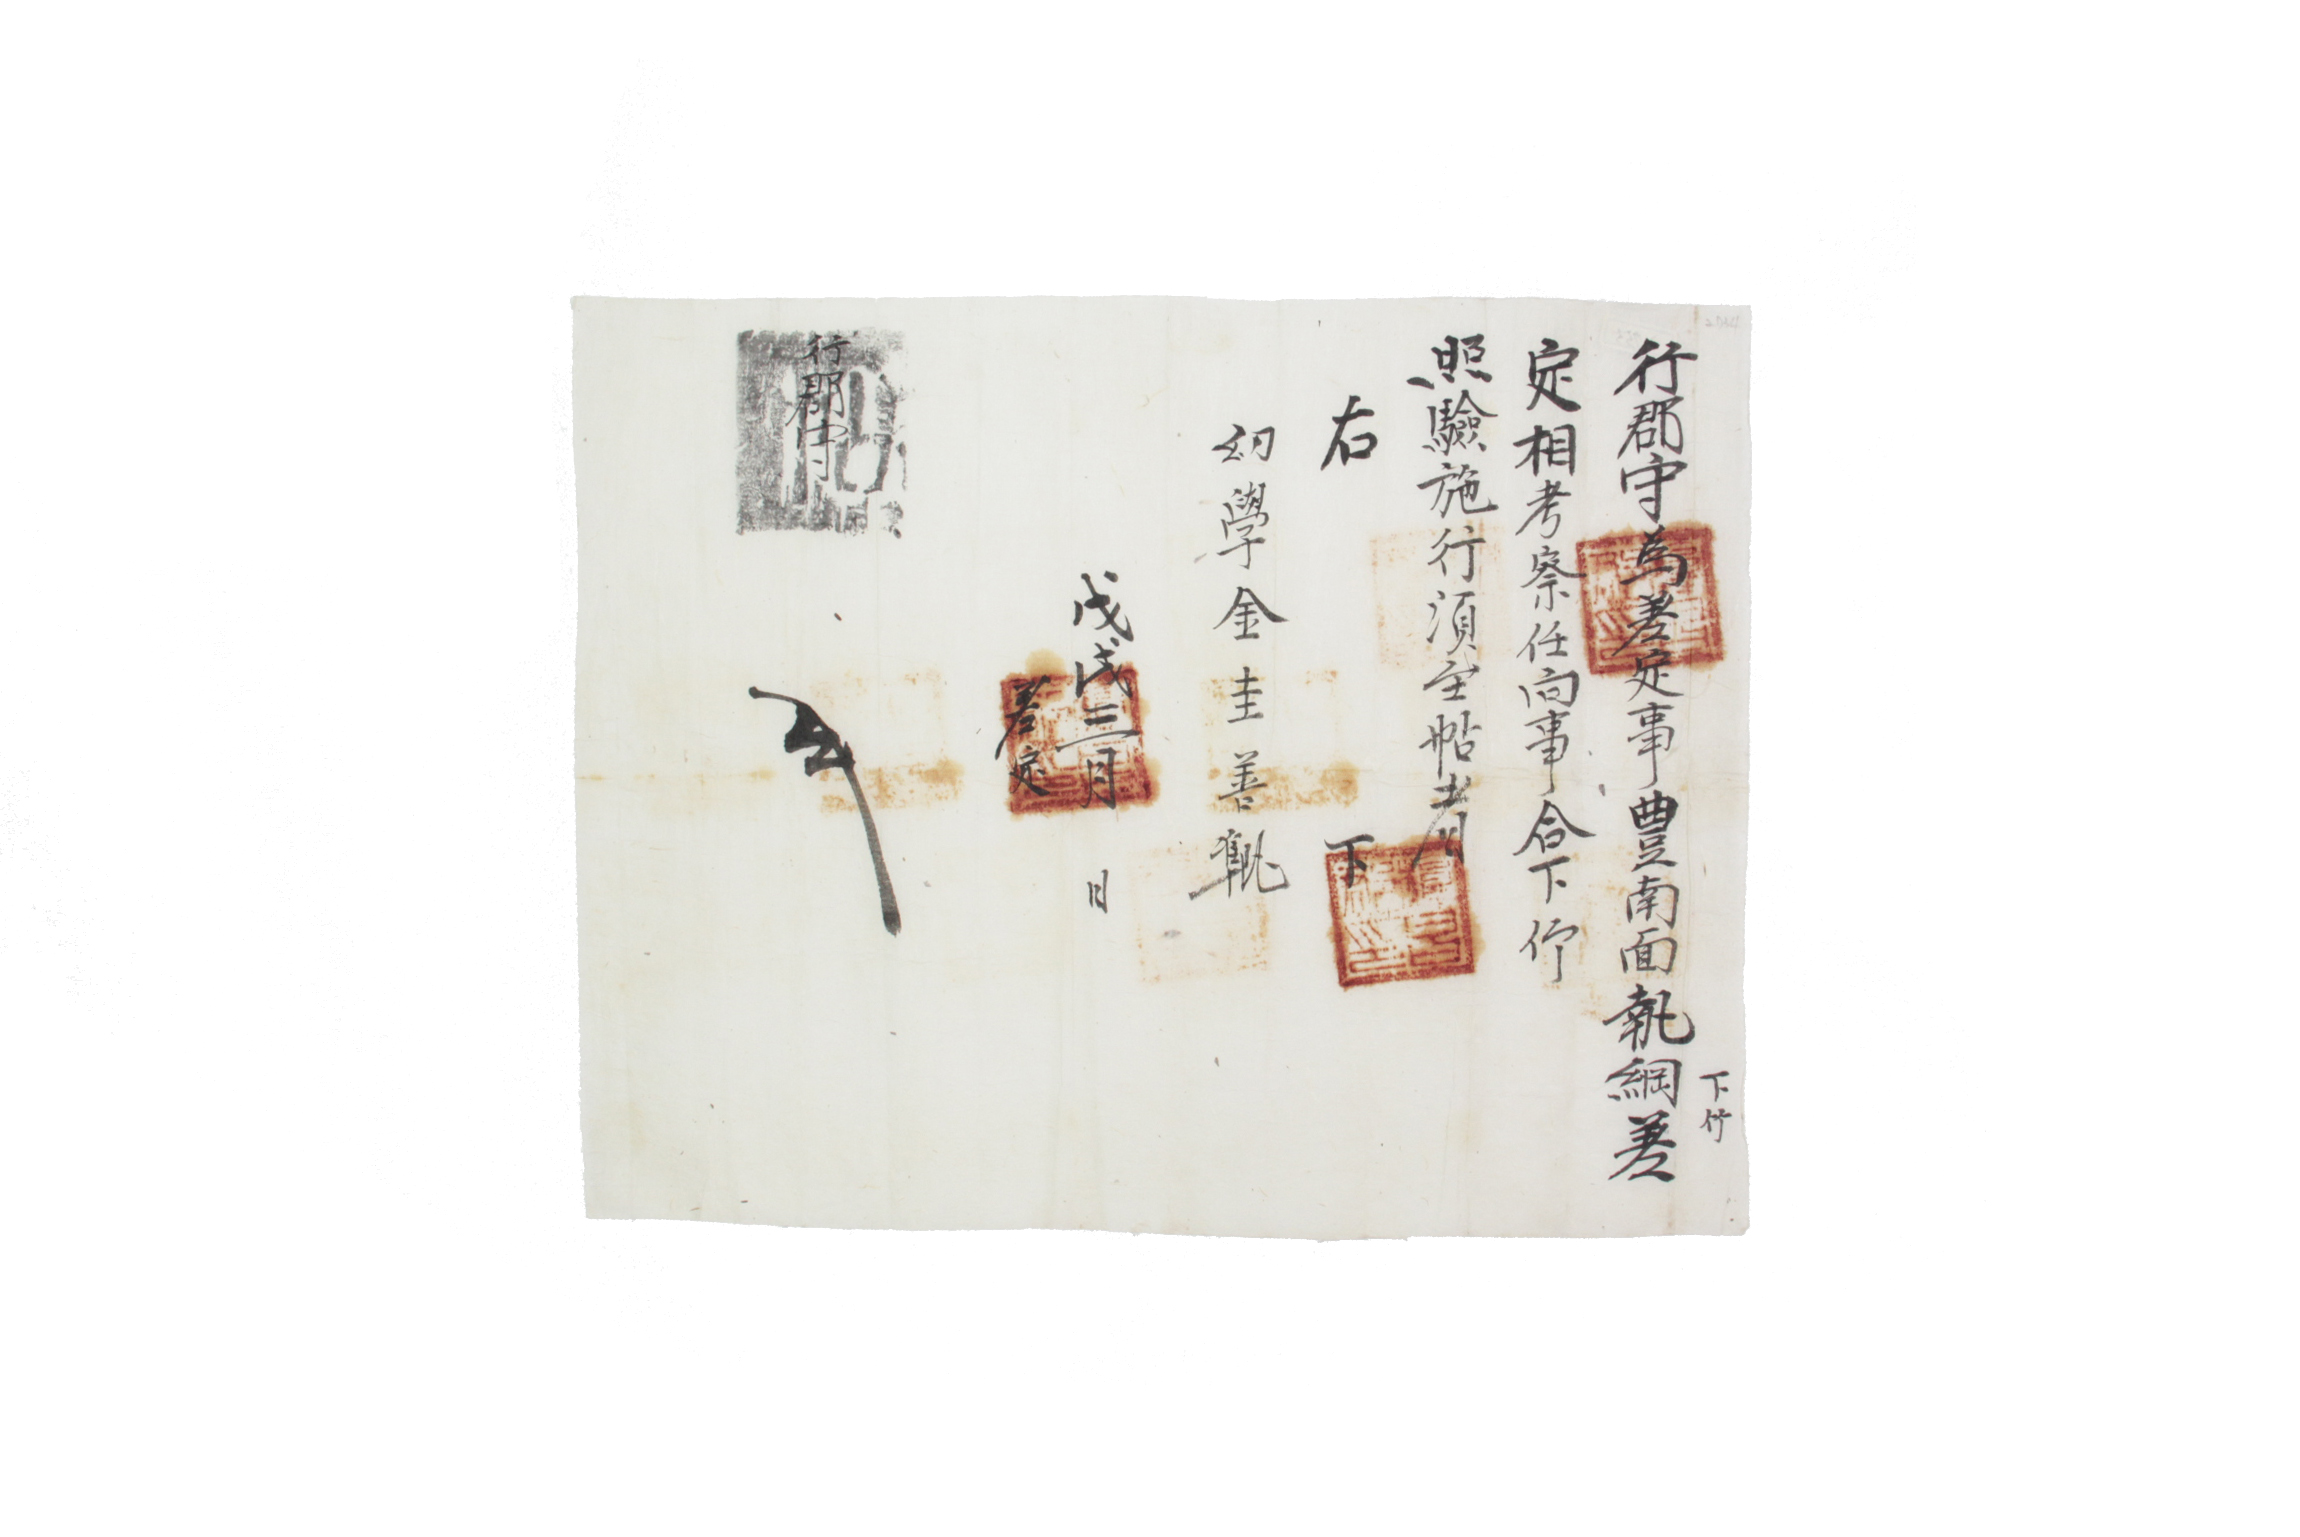 行郡守爲差定事豊南面執綱差
下竹
定相考察任向事合下仰
照驗施行須至帖者
右下
幼學金圭善執
戊戌三月日
差定
行郡守